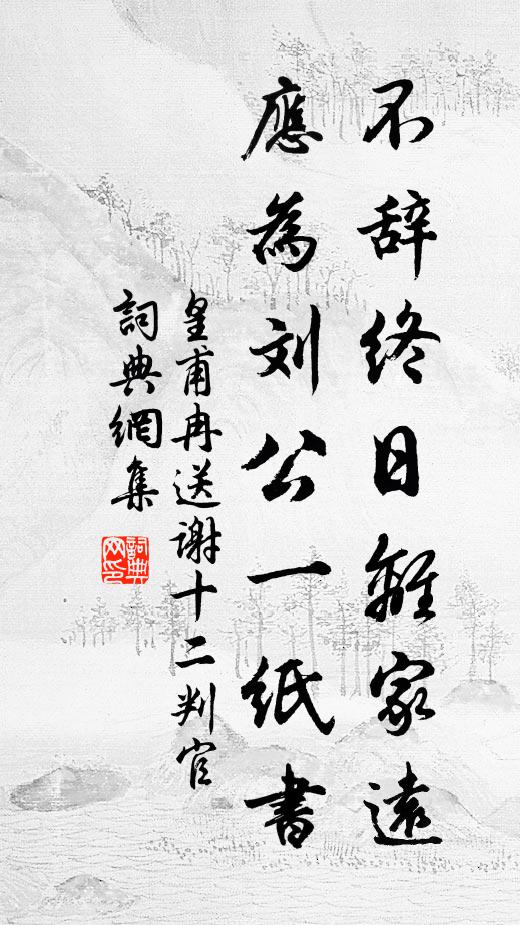 不辞终日離家遠
應為刘公一紙書
皇甫冉送谢十二判官
詞典網集
詞典网印